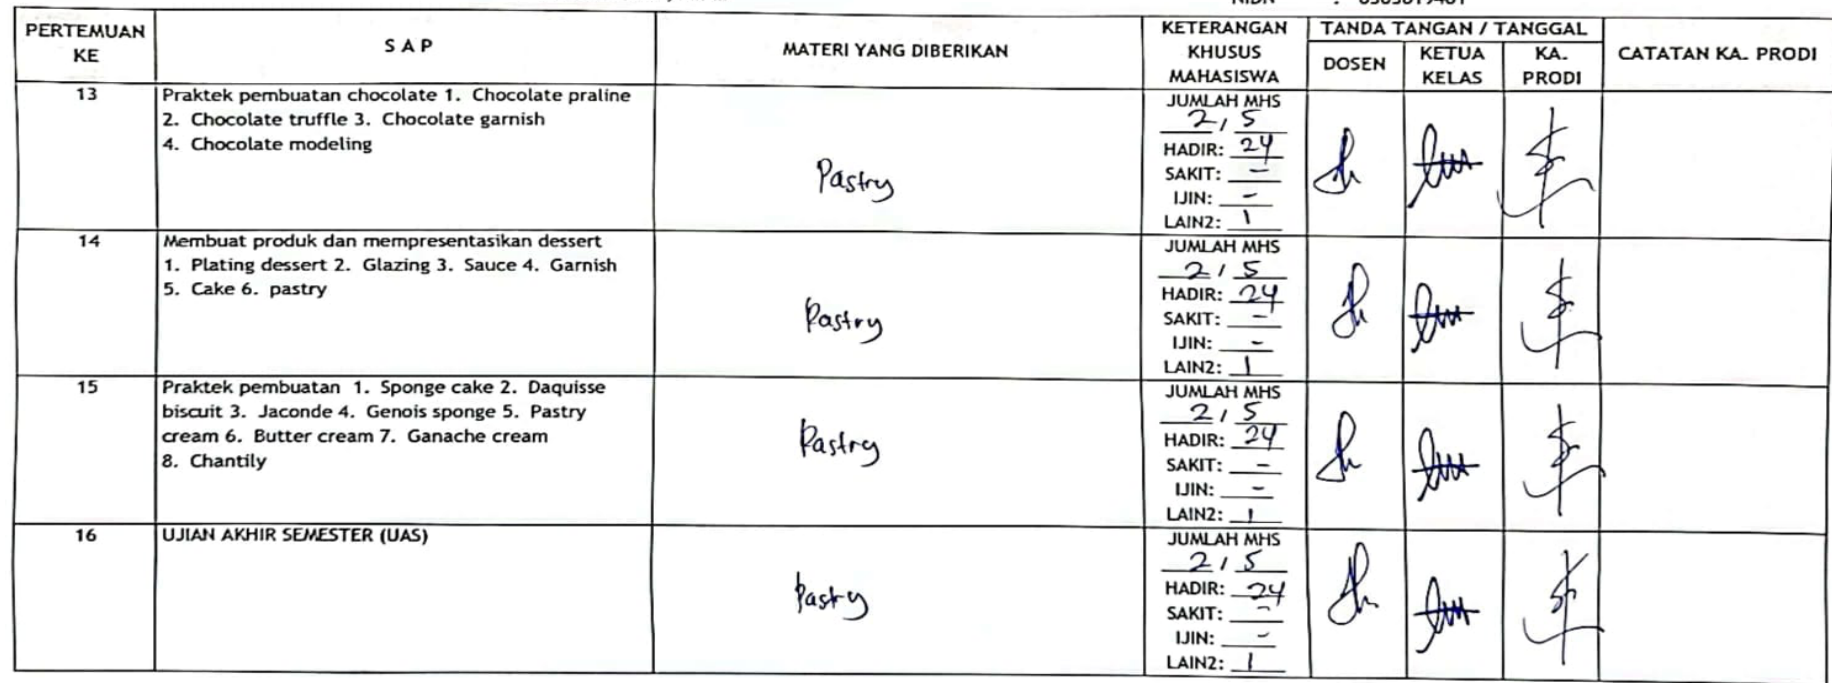 PERTEMUAN KE
S A P
MATERI YANG DIBERIKAN
KETERANGAN KHUSUS MAHASISWA
TANDA TANGAN / TANGGAL
DOSEN
KETUA KELAS
KA. PRODI
CATATAN KA. PRODI
13
Praktek pembuatan chocolate 1. Chocolate praline
2. Chocolate truffle 3. Chocolate garnish
4. Chocolate modeling
Pastry
JUMLAH MHS
2 / 5
HADIR: 24
SAKIT: -
IJIN: -
LAIN2: 1
14
Membuat produk dan mempresentasikan dessert
1. Plating dessert 2. Glazing 3. Sauce 4. Garnish
5. Cake 6. pastry
Pastry
JUMLAH MHS
2 / 5
HADIR: 24
SAKIT: -
IJIN: -
LAIN2: 1
15
Praktek pembuatan 1. Sponge cake 2. Daquisse
biscuit 3. Jaconde 4. Genois sponge 5. Pastry
cream 6. Butter cream 7. Ganache cream
8. Chantily
Pastry
JUMLAH MHS
2 / 5
HADIR: 24
SAKIT: -
IJIN: -
LAIN2: 1
16
UJIAN AKHIR SEMESTER (UAS)
Pastry
JUMLAH MHS
2 / 5
HADIR: 24
SAKIT: -
IJIN: -
LAIN2: 1